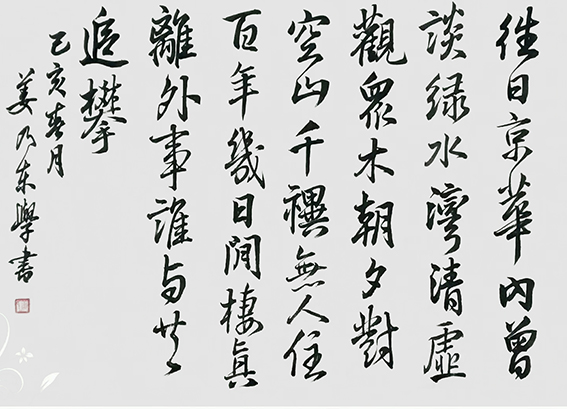 往日京華內曾
談緑水灣清虛
觀眾木朝夕對
空山千禩無人住
百年幾日閒棲真
離外事誰与共
追攀
己亥春月
姜乃东學書